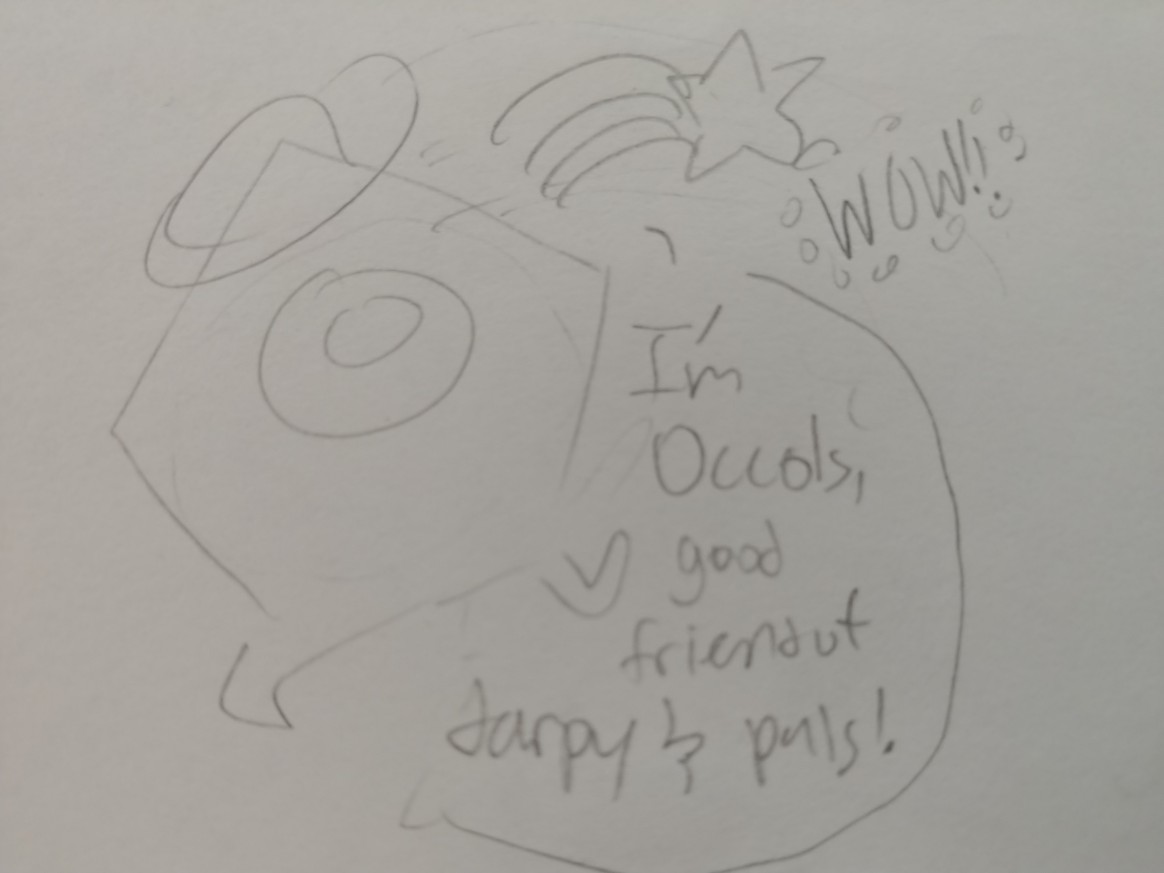 WOW!!
I'm
Occols,
good
friend of
Jarpy & pals!